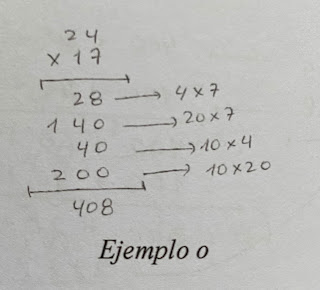 24
x 17
28 → 4x7
140 → 20x7
40 → 10x4
200 → 10x20
408
Ejemplo o